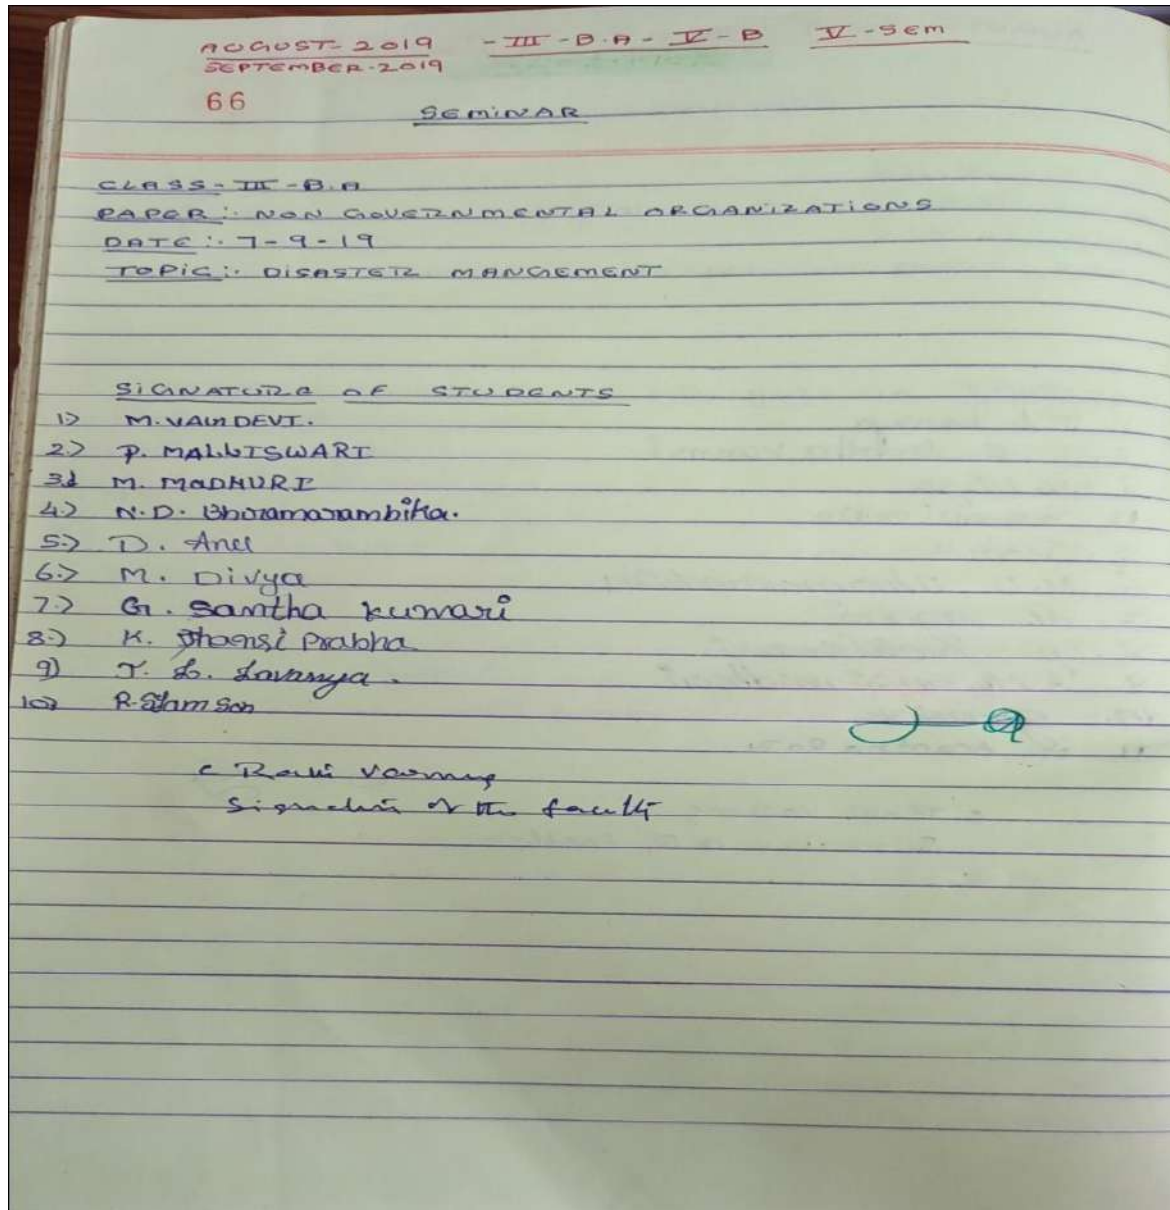 AUGUST-2019 - III - B.A - V - B V-SEM
SEPTEMBER-2019
66
SEMINAR
CLASS - III - B.A
PAPER :- NON GOVERNMENTAL ORGANIZATIONS
DATE :- 7-9-19
TOPIC :- DISASTER MANGEMENT
SIGNATURE OF STUDENTS
1) M. DEVI.
2) P. MALLISWARI
3) M. MADHURI
4) N.D. Bhoramarambika.
5) D.
6) M. Divya
7) G. Santha kumari
8) K. Jhansi Prabha
9) T. L. Lavanya.
10) R.
c Ravi
Signature of the faculty